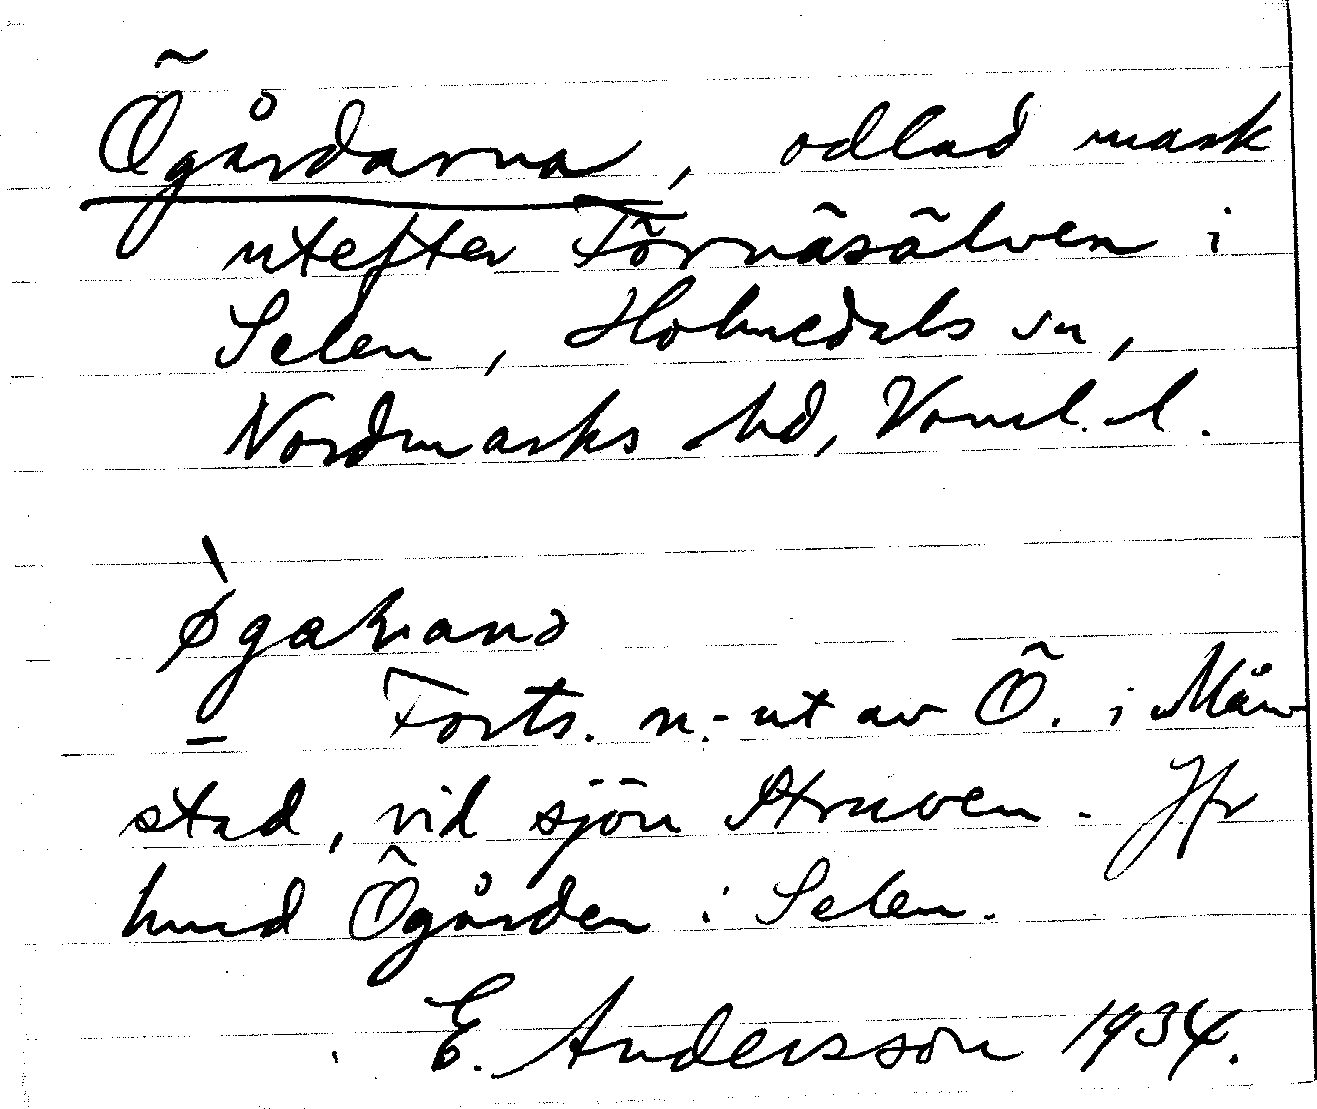 Ögårdarna, odlad mark
utefter Törnäsälven i
Selen, Holmedals sn,
Nordmarks hd, Värml. l.
øgaɦan
Forts. n.-ut av Ö. i Mån-
stad, vid sjön Struven. Jfr
hmd Ögården i Selen.
E. Andersson 1934.